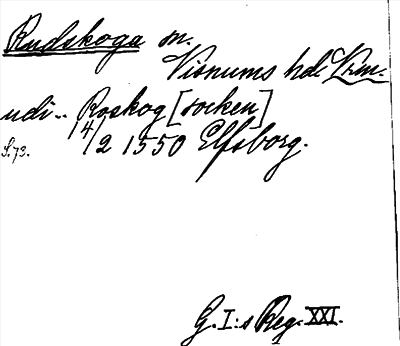 Rudskoga sn.
Visnums hd. Vrm.
udi.. Roskog [socken]
14/2 1550 Elfsborg.
S.73.
G. I:s Reg. XXI.